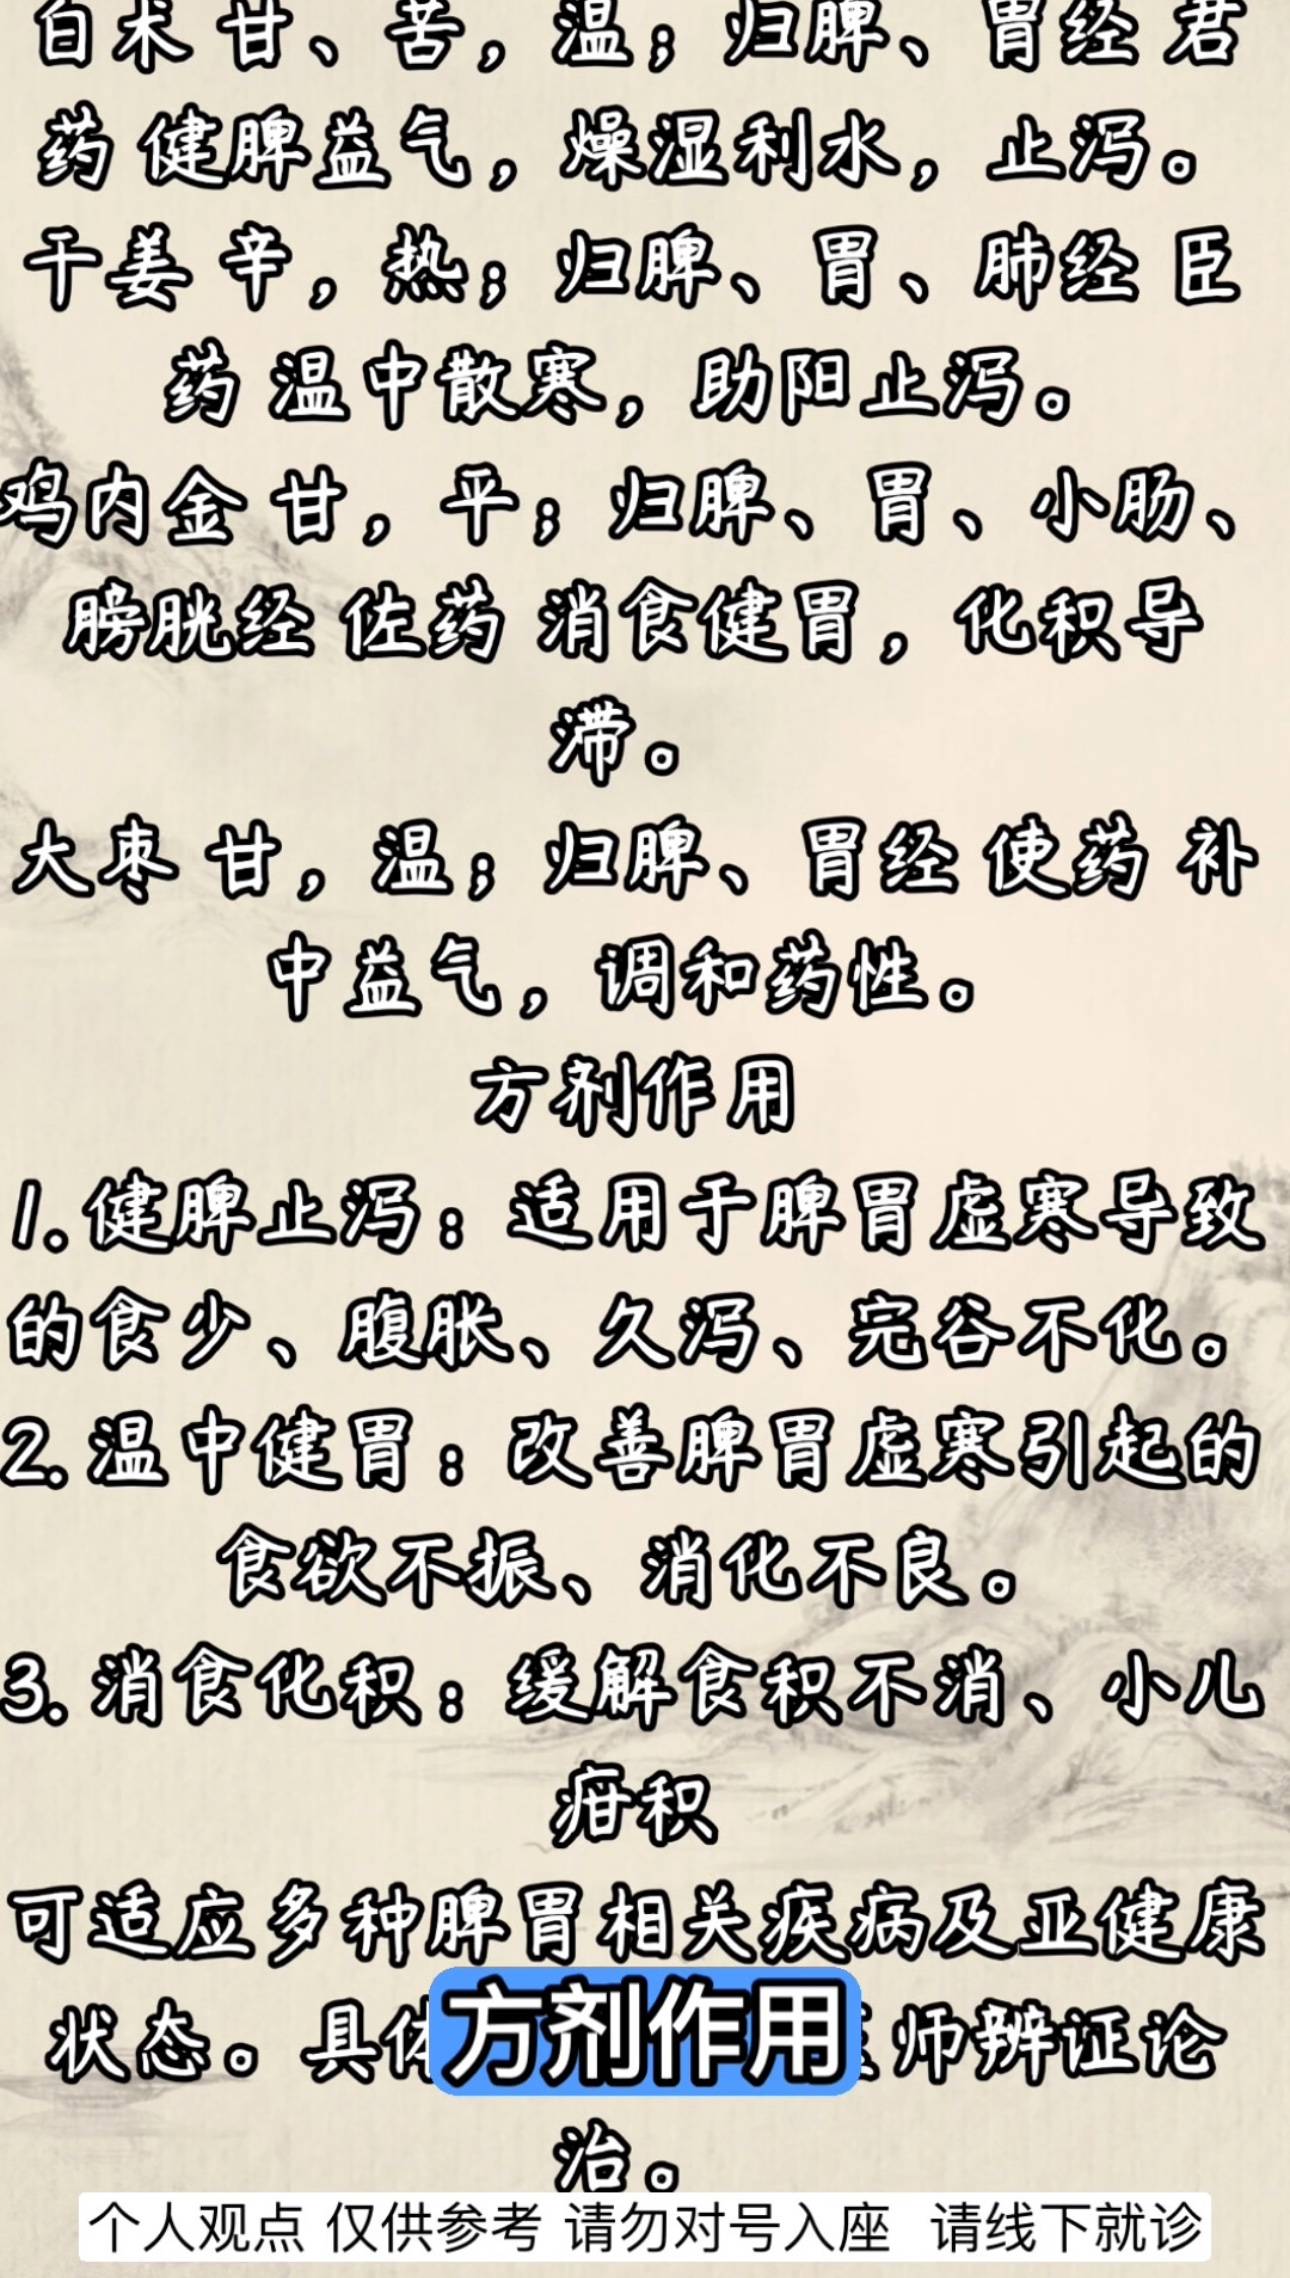 白术 甘、苦，温；归脾、胃经 君
药 健脾益气，燥湿利水，止泻。
干姜 辛，热；归脾、胃、肺经 臣
药 温中散寒，助阳止泻。
鸡内金 甘，平；归脾、胃、小肠、
膀胱经 佐药 消食健胃，化积导
滞。
大枣 甘，温；归脾、胃经 使药 补
中益气，调和药性。
方剂作用
1. 健脾止泻：适用于脾胃虚寒导致
的食少、腹胀、久泻、完谷不化。
2. 温中健胃：改善脾胃虚寒引起的
食欲不振、消化不良。
3. 消食化积：缓解食积不消、小儿
疳积
可适应多种脾胃相关疾病及亚健康
状态。具体 师辨证论
方剂作用
治。
个人观点 仅供参考 请勿对号入座 请线下就诊